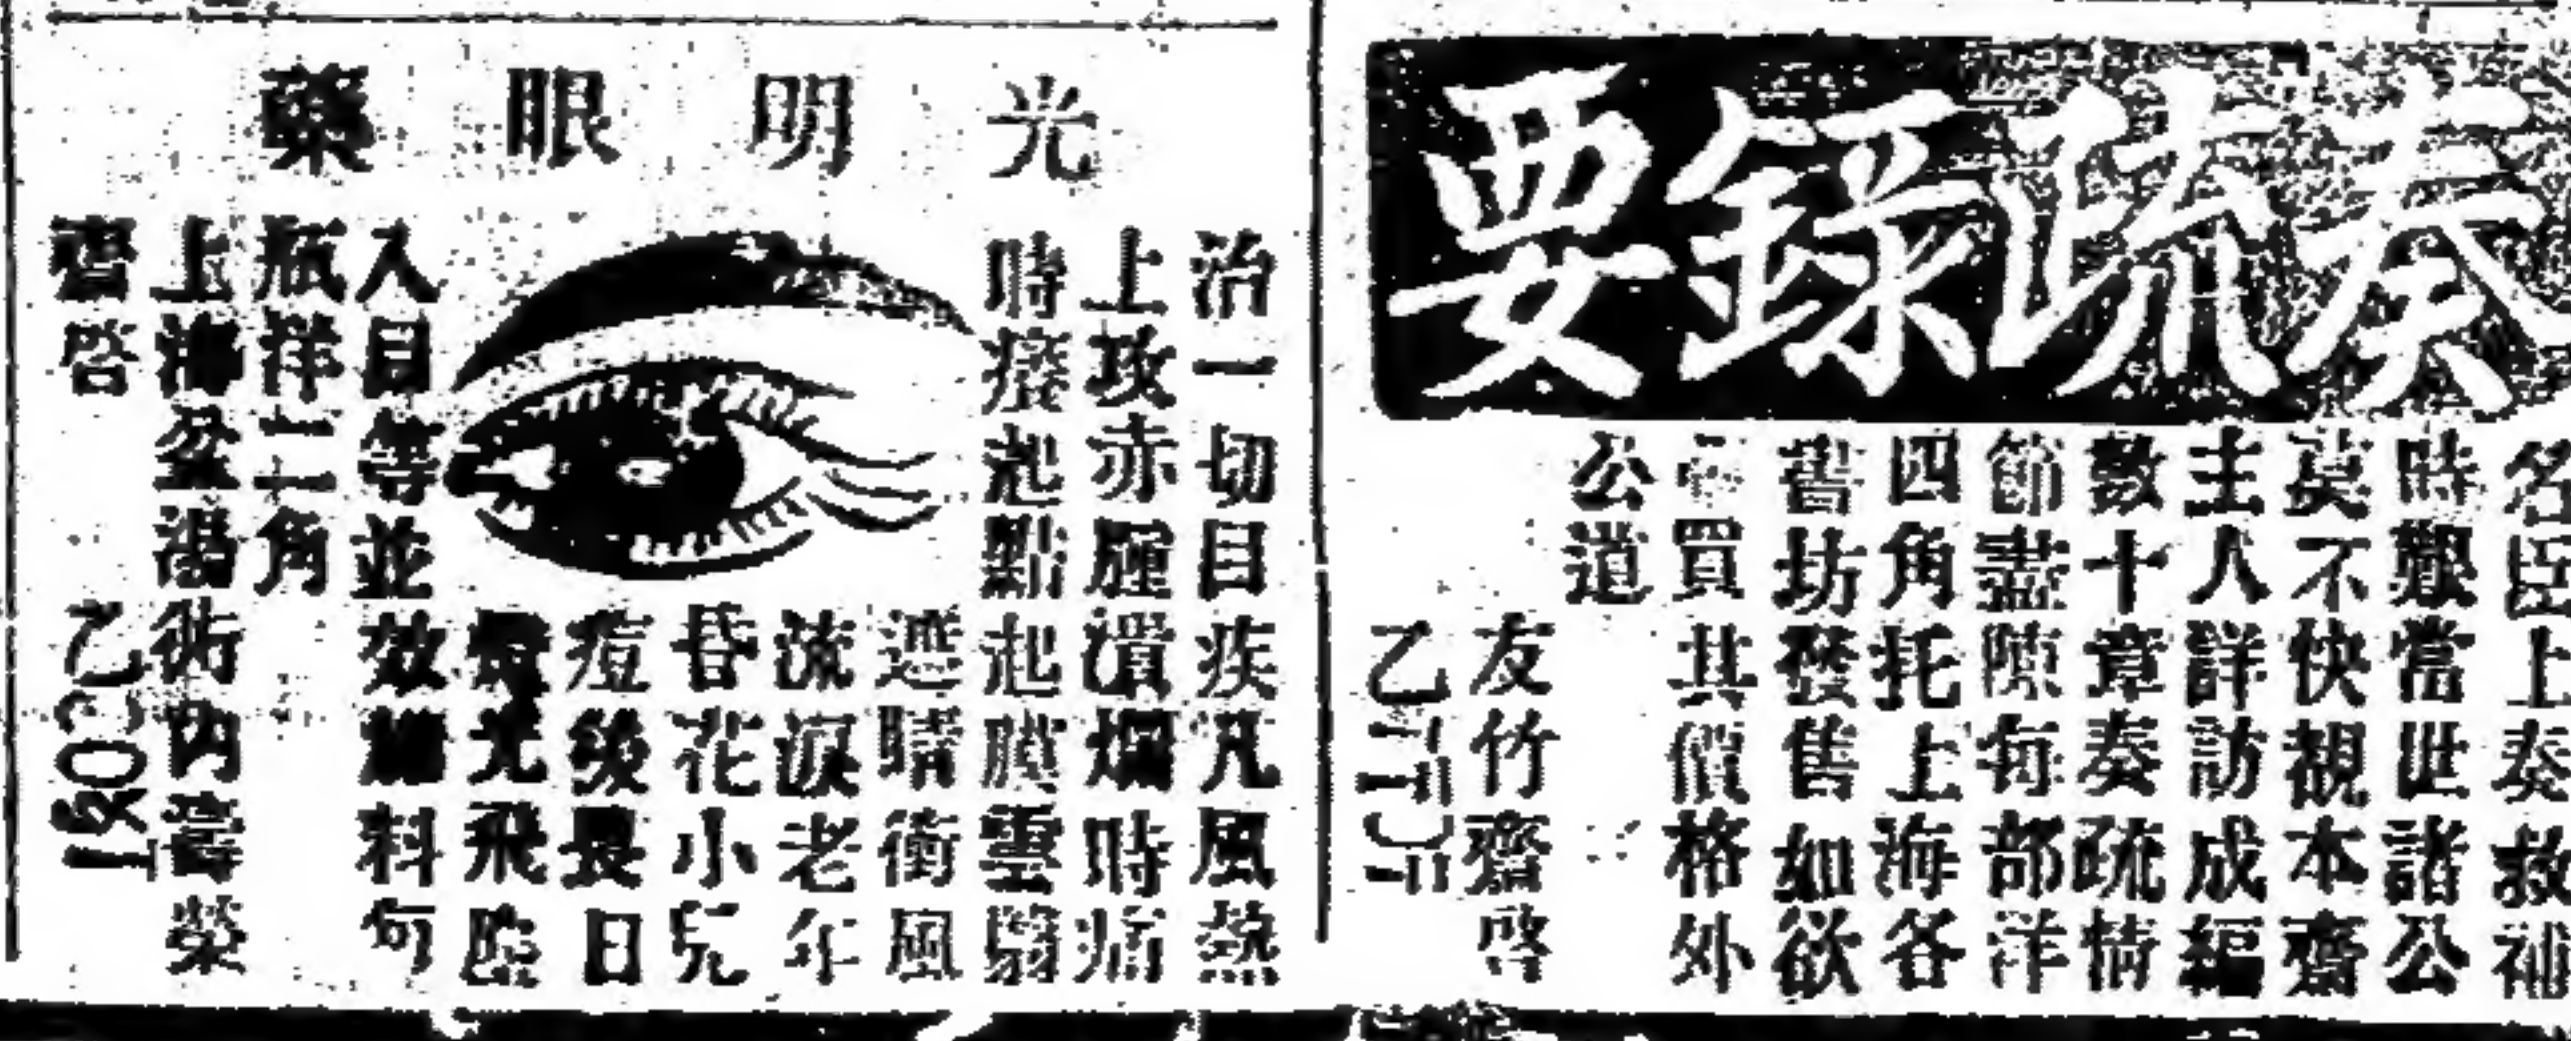 奏疏錄要
名臣上奏救補
時艱當世諸公
莫不快覩本齋
主人詳訪成編
數十章奏疏情
節盡陳每部洋
四角托上海各
書坊發售如欲
買其價格外
公道
友竹齋啓
光明眼藥
治一切目疾凡風熱
上攻赤腫潰爛時痛
時癢起點起膜雲翳
遮睛衝風
流淚老年
昏花小兒
痘後畏日
光飛塵
入目等並效料每
瓶洋二角
上海盆湯衖內壽榮
齋啓